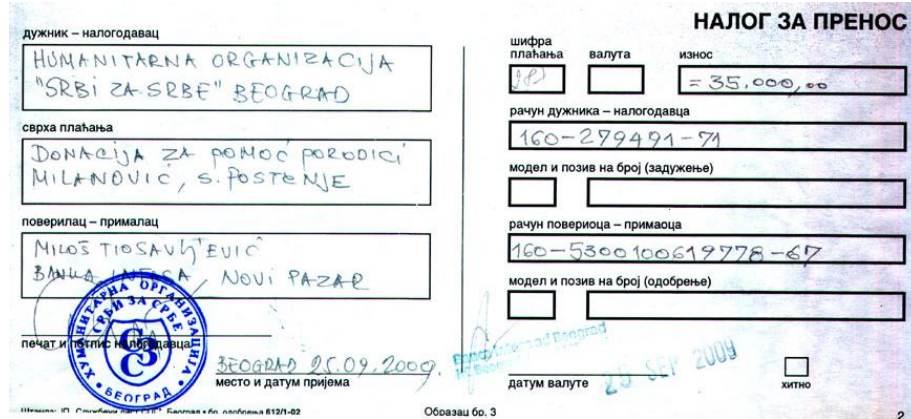 НАЛОГ ЗА ПРЕНОС
дужник – налогодавац
HUMANITARNA ORGANIZACIJA
"SRBI ZA SRBE" BEOGRAD
сврха плаћања
DONACIJA ZA POMOĆ PORODICI
MILANOVIĆ, S. POSTENJE
поверилац – прималац
MILOŠ TIOSAVLJEVIĆ
BANKA INTESA, NOVI PAZAR
ХУМАНИТАРНА ОРГАНИЗАЦИЈА
СРБИ ЗА СРБЕ
БЕОГРАД
печат и потпис налогодавца
BEOGRAD 25.09.2009.
место и датум пријема
Образац бр. 3
шифра
плаћања
валута
износ
= 35.000,00
рачун дужника – налогодавца
160-279491-71
модел и позив на број (задужење)
рачун повериоца – примаоца
160-5300100619778-67
модел и позив на број (одобрење)
25 SEP 2009
датум валуте
хитно
2